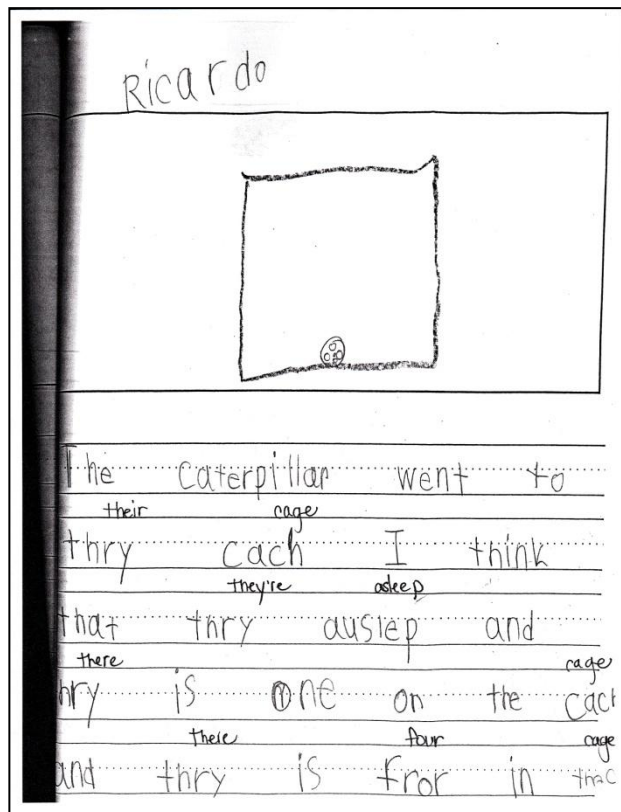 Ricardo
The caterpillar went to
their cage
thry cach I think
they're asleep
that thry auslep and
there cage
hry is one on the cach
there four cage
and thry is fror in thac